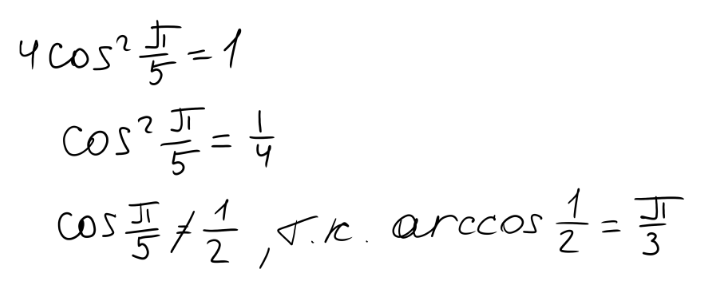 4cos² π/5 = 1
cos² π/5 = 1/4
cos π/5 ≠ 1/2, т.к. arccos 1/2 = π/3